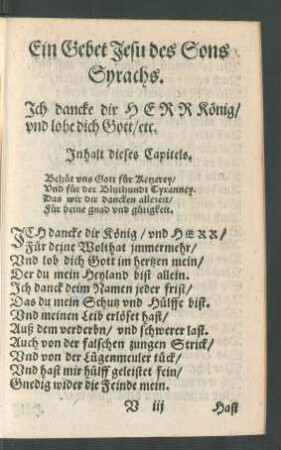 Ein Gebet Jesu des Sons
Syrachs.
Ich dancke dir HERR König/
vnd lobe dich Gott/etc.
Inhalt dieses Capitels.
Behüt vns Gott für Ketzerey/
Vnd für der Bluthundt Tyranney.
Das wir dir dancken allezeit/
Für deine gnad vnd gütigkeit.
ICH dancke dir König/ vnd HERR/
Für deine Wolthat jmmermehr/
Vnd lob dich Gott im hertzen mein/
Der du mein Heyland bist allein.
Ich danck deim Namen jeder frist/
Das du mein Schutz vnd Hülffe bist.
Vnd meinen Leib erlöset hast/
Auß dem verderbn/ vnd schwerer last.
Auch von der falschen zungen Strick/
Vnd von der Lügenmeuler tück/
Vnd hast mir hülff geleistet fein/
Gnedig wider die Feinde mein.
V iij Hast